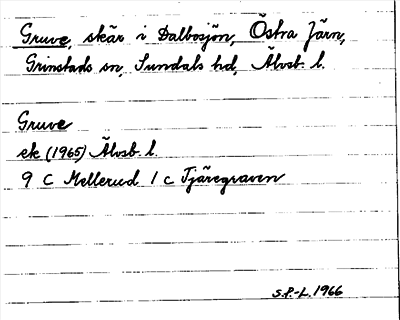 Gruve, skär i Dalbosjön, Östra Järn,
Grinstads sn, Sundals hd, Älvsb. l.
Gruve
ek (1965) Älvsb. l.
9 C Mellerud 1 c Tjäregraven
S.P.-L. 1966